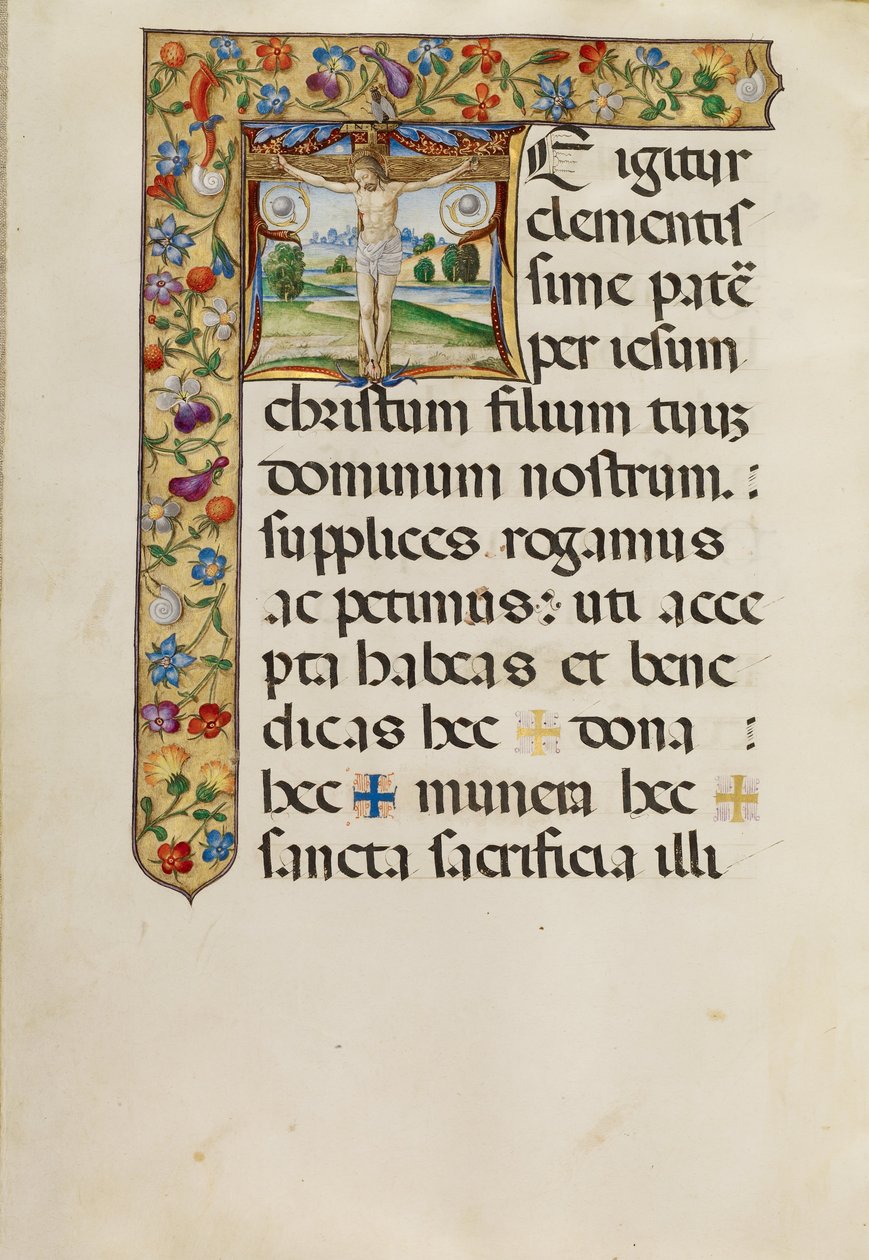 TE igitur
clementis
sime patē
per iesum
christum filium tuuz
dominum nostrum.
supplices rogamus
ac petimus: uti acce
pta habeas et bene
dicas hec ✚ dona
hec ✚ munera hec ✚
sancta sacrificia illi